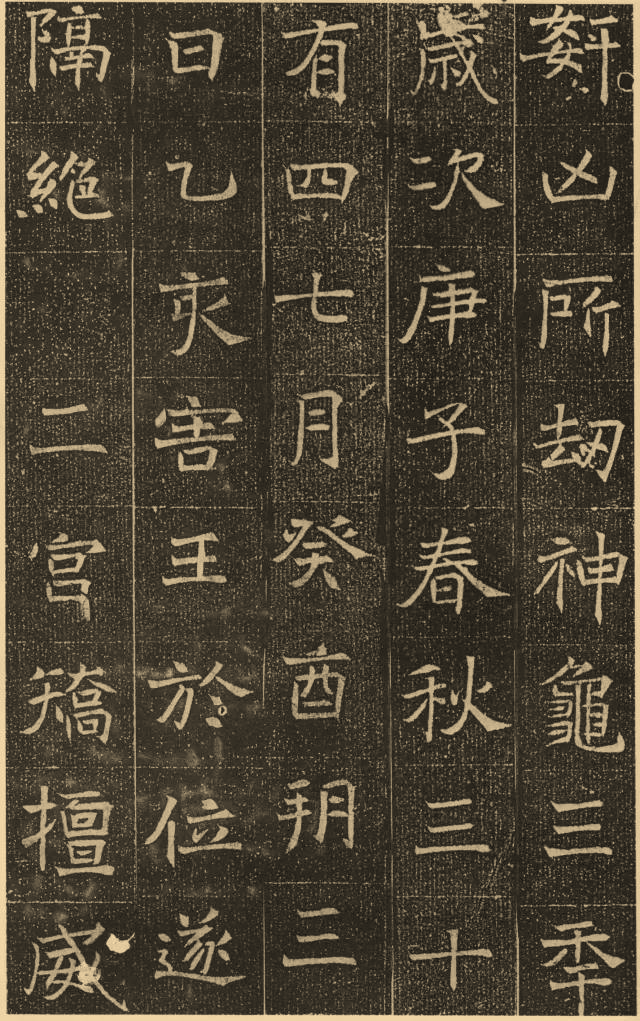 姧凶所劫神龜三秊
歲次庚子春秋三十
有四七月癸酉朔三
日乙亥害王於位遂
隔絕二宮矯擅威